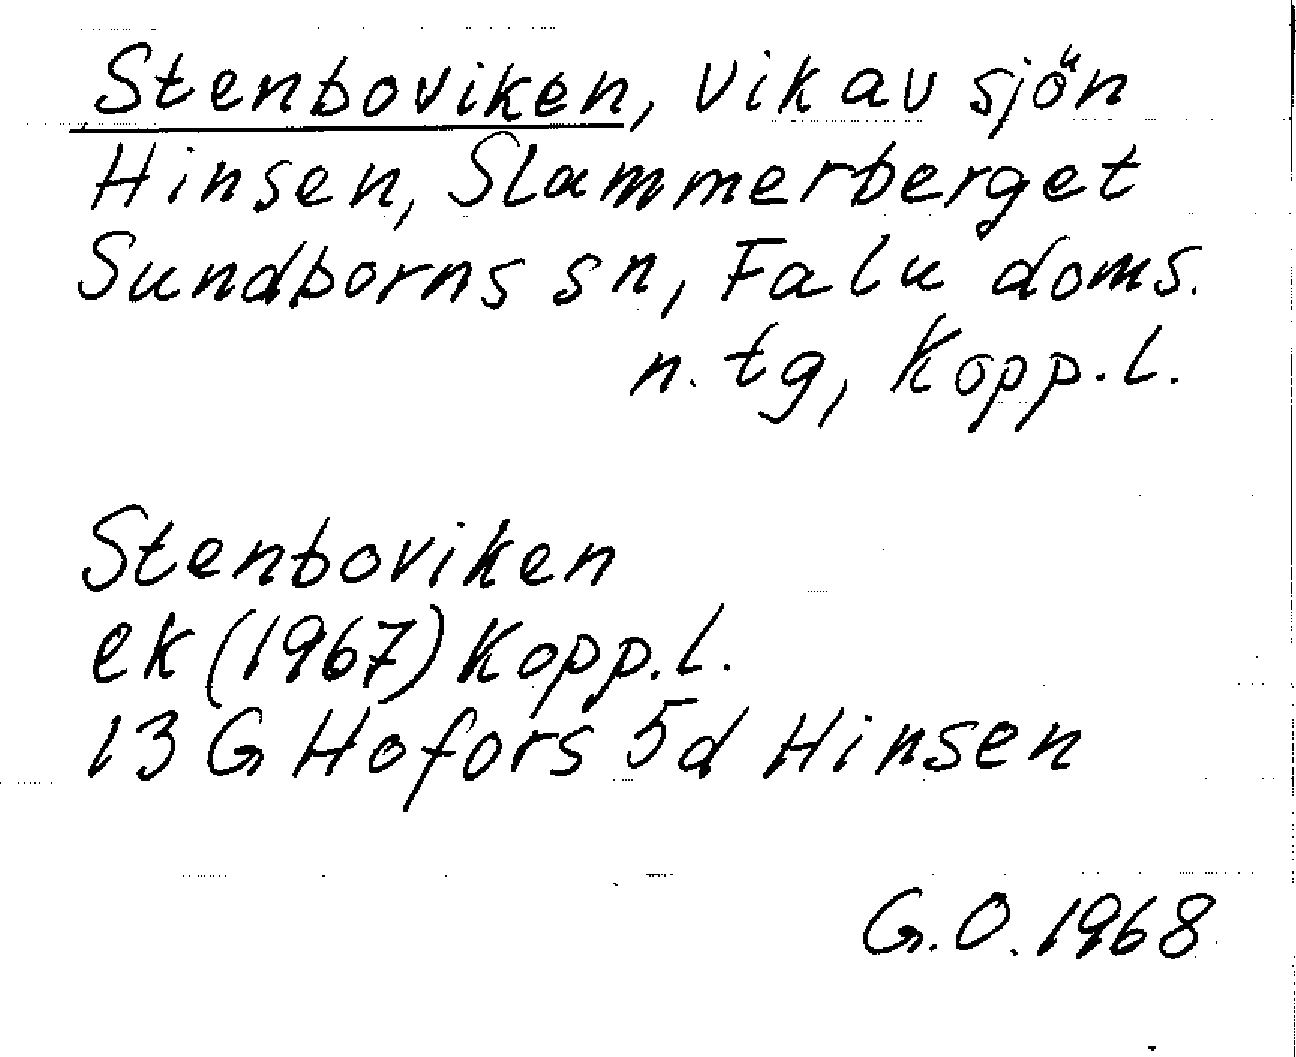 Stenboviken, vik av sjön
Hinsen, Slammerberget
Sundborns sn, Falu doms.
n. tg, Kopp.l.
Stenboviken
ek (1967) Kopp.l.
13 G Hofors 5d Hinsen
G.O. 1968